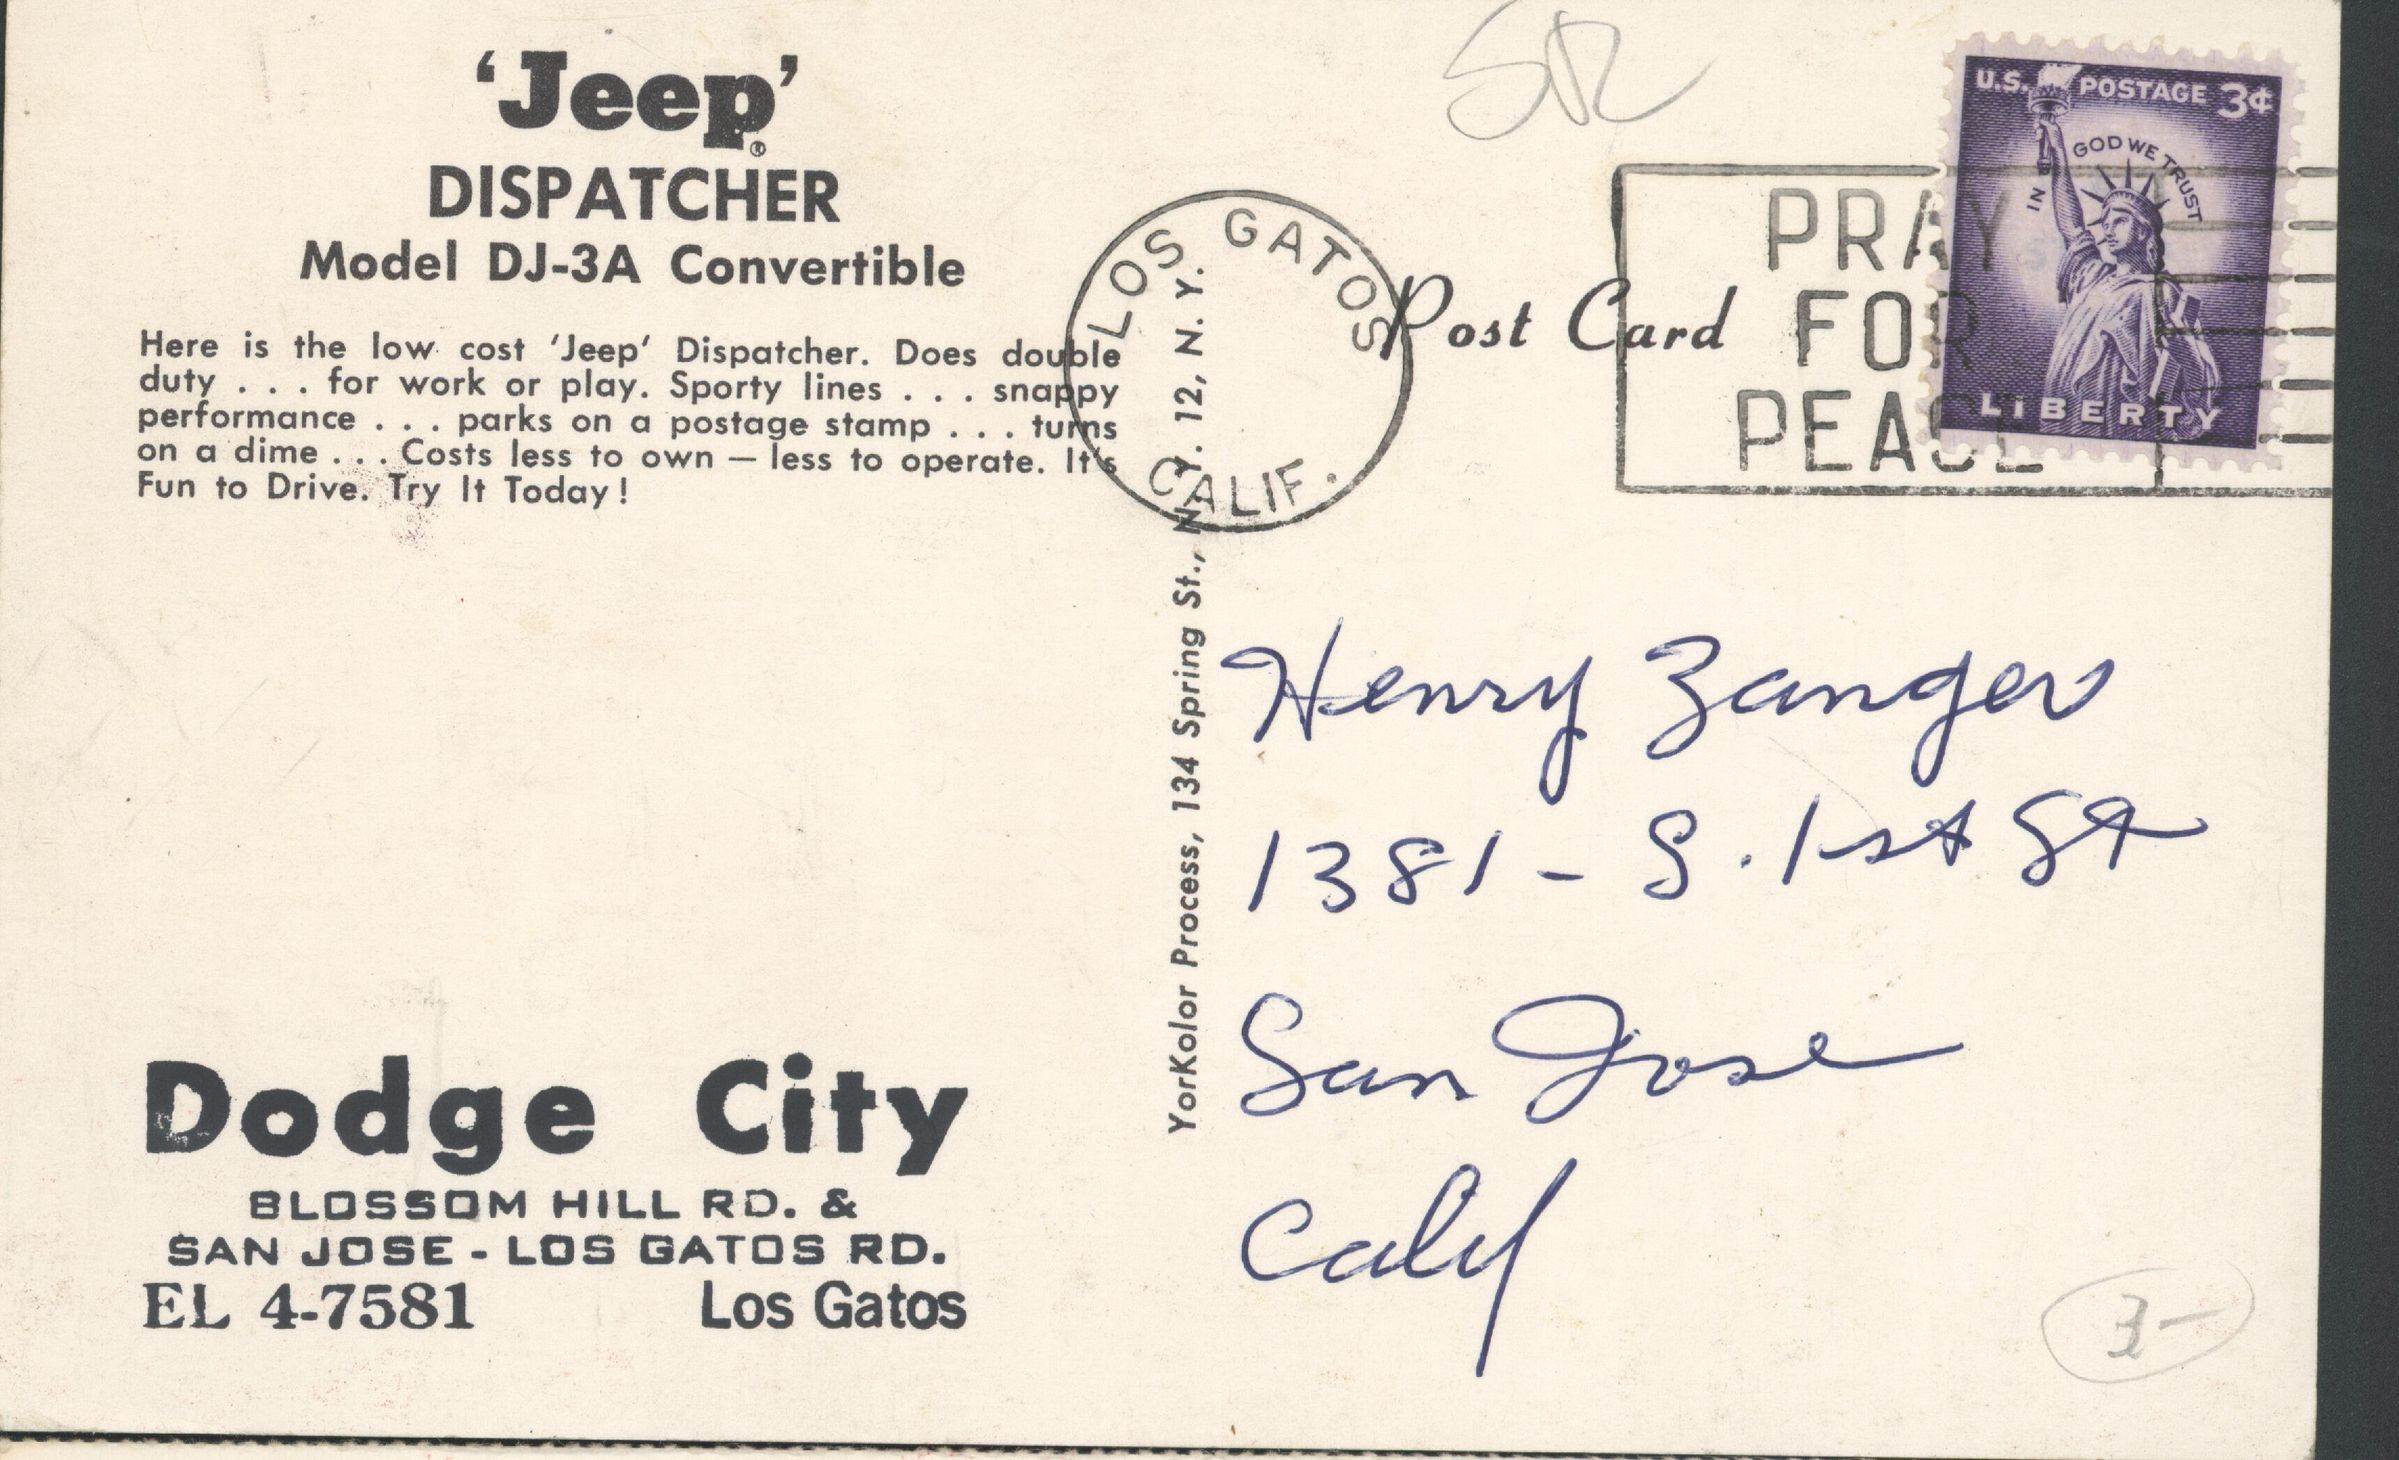 'Jeep'®
DISPATCHER
Model DJ-3A Convertible
Here is the low cost 'Jeep' Dispatcher. Does double
duty . . . for work or play. Sporty lines . . . snappy
performance . . . parks on a postage stamp . . . turns
on a dime . . . Costs less to own — less to operate. It's
Fun to Drive. Try It Today!
Dodge City
BLOSSOM HILL RD. &
SAN JOSE - LOS GATOS RD.
EL 4-7581 Los Gatos
YorKolor Process, 134 Spring St., N. Y. 12, N. Y.
LOS GATOS
CALIF.
Post Card
PRAY
FOR
PEACE
U.S. POSTAGE 3¢
IN GOD WE TRUST
LIBERTY
Henry Zanger
1381 - S. 1st St
San Jose
Calif
3-